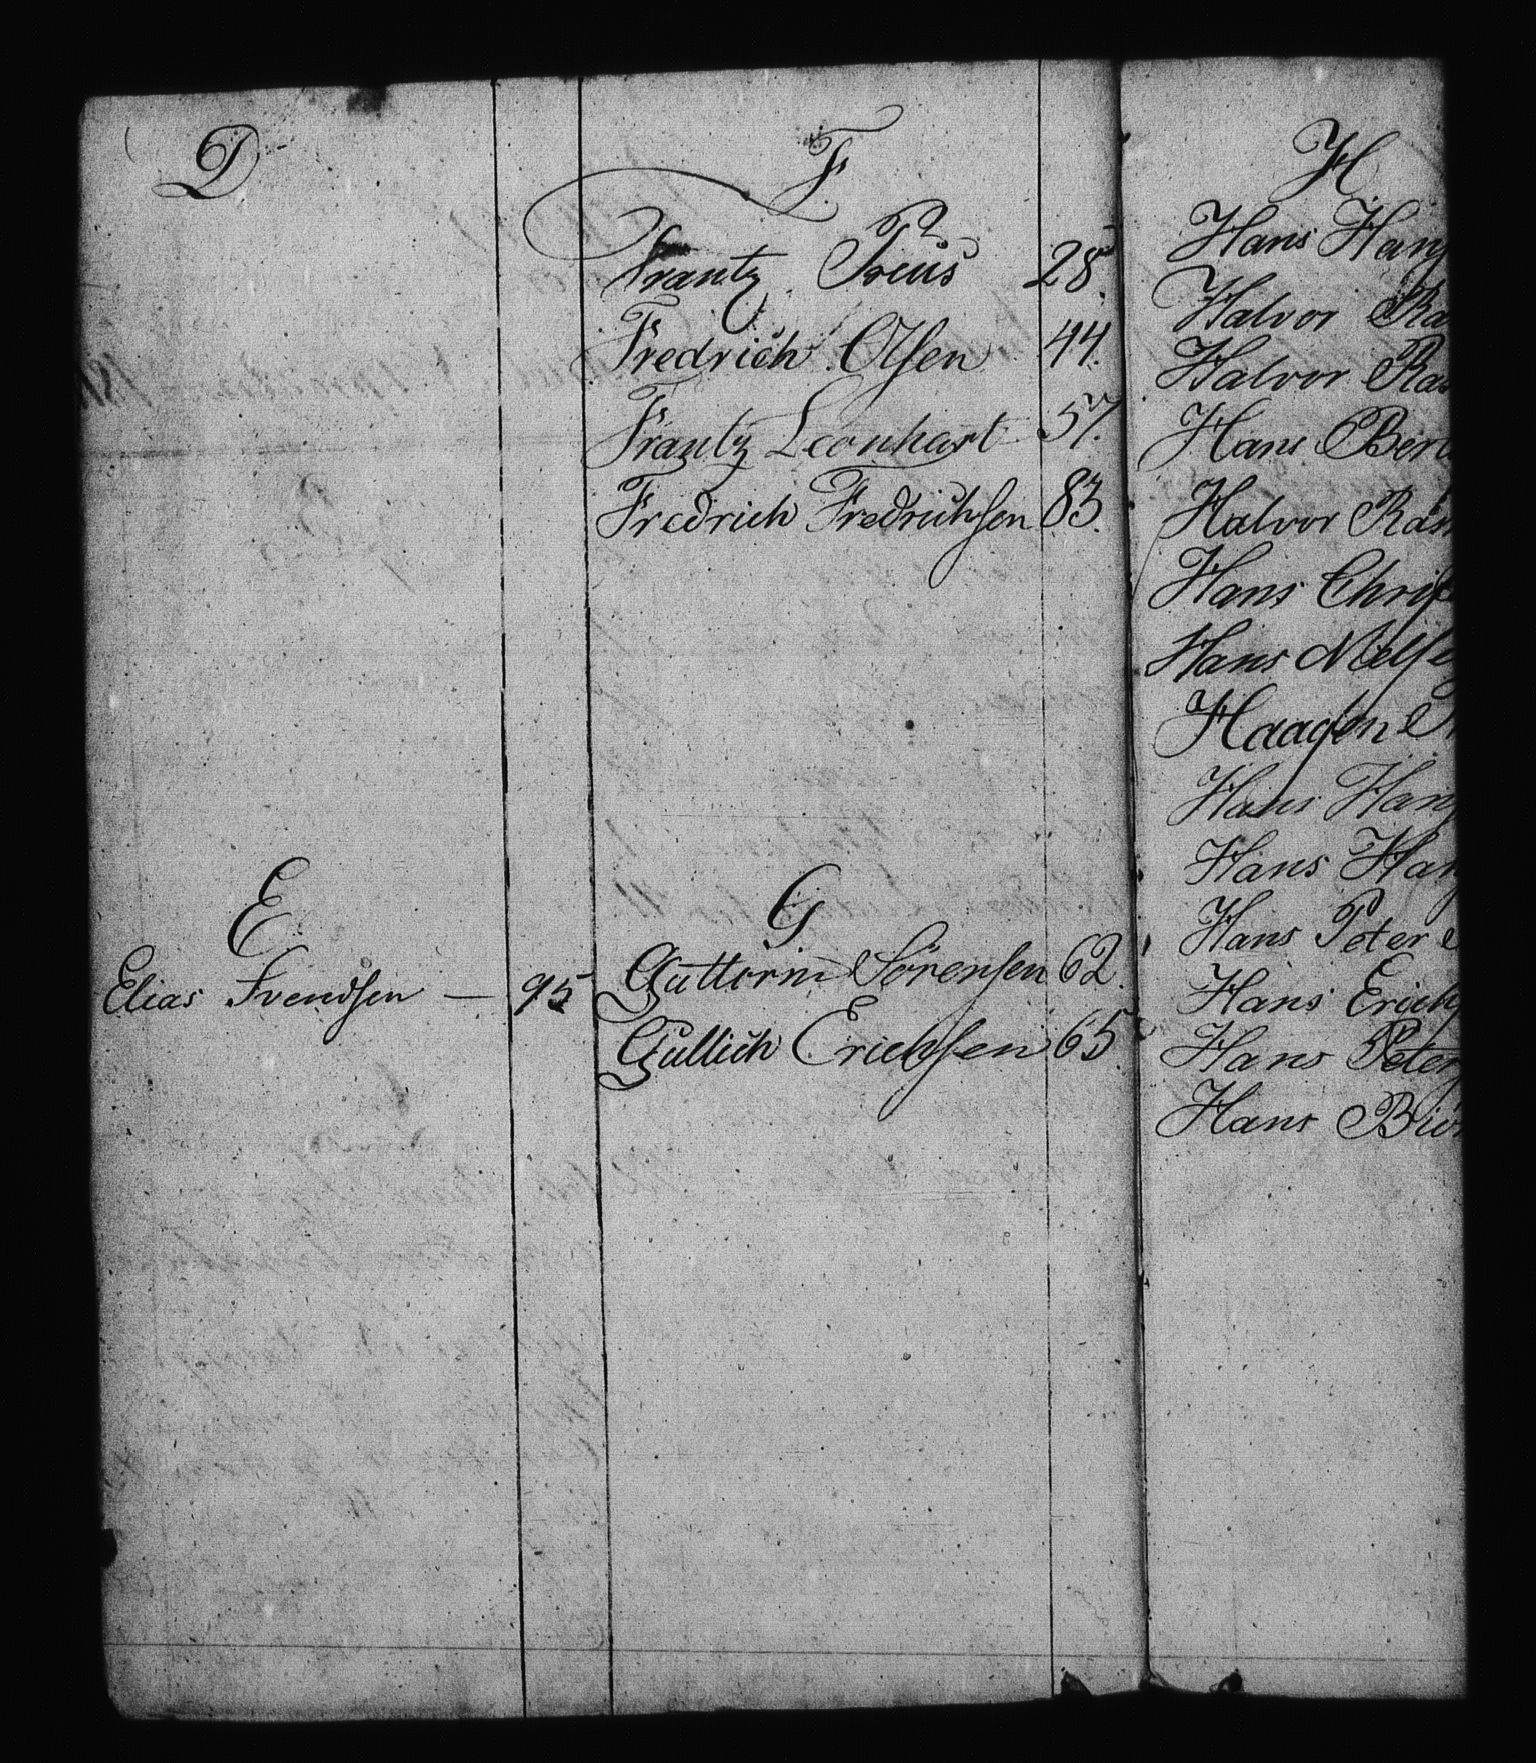 D
E
Elias Svendsen — 95
F
Frantz Preus 28.
Fredrich Olsen 44.
Frantz Leonhart 57.
Fredrich Fredrichsen 83.
G
Guttorm Sørensen 62.
Gullich Erichsen 65
H
Hans Hans
Halvor Ra
Halvor Ras
Hans Bern
Halvor Ras
Hans Chris
Hans Niels
Haagen
Hans Hans
Hans Hans
Hans Peter
Hans Erichs
Hans Peter
Hans Biør